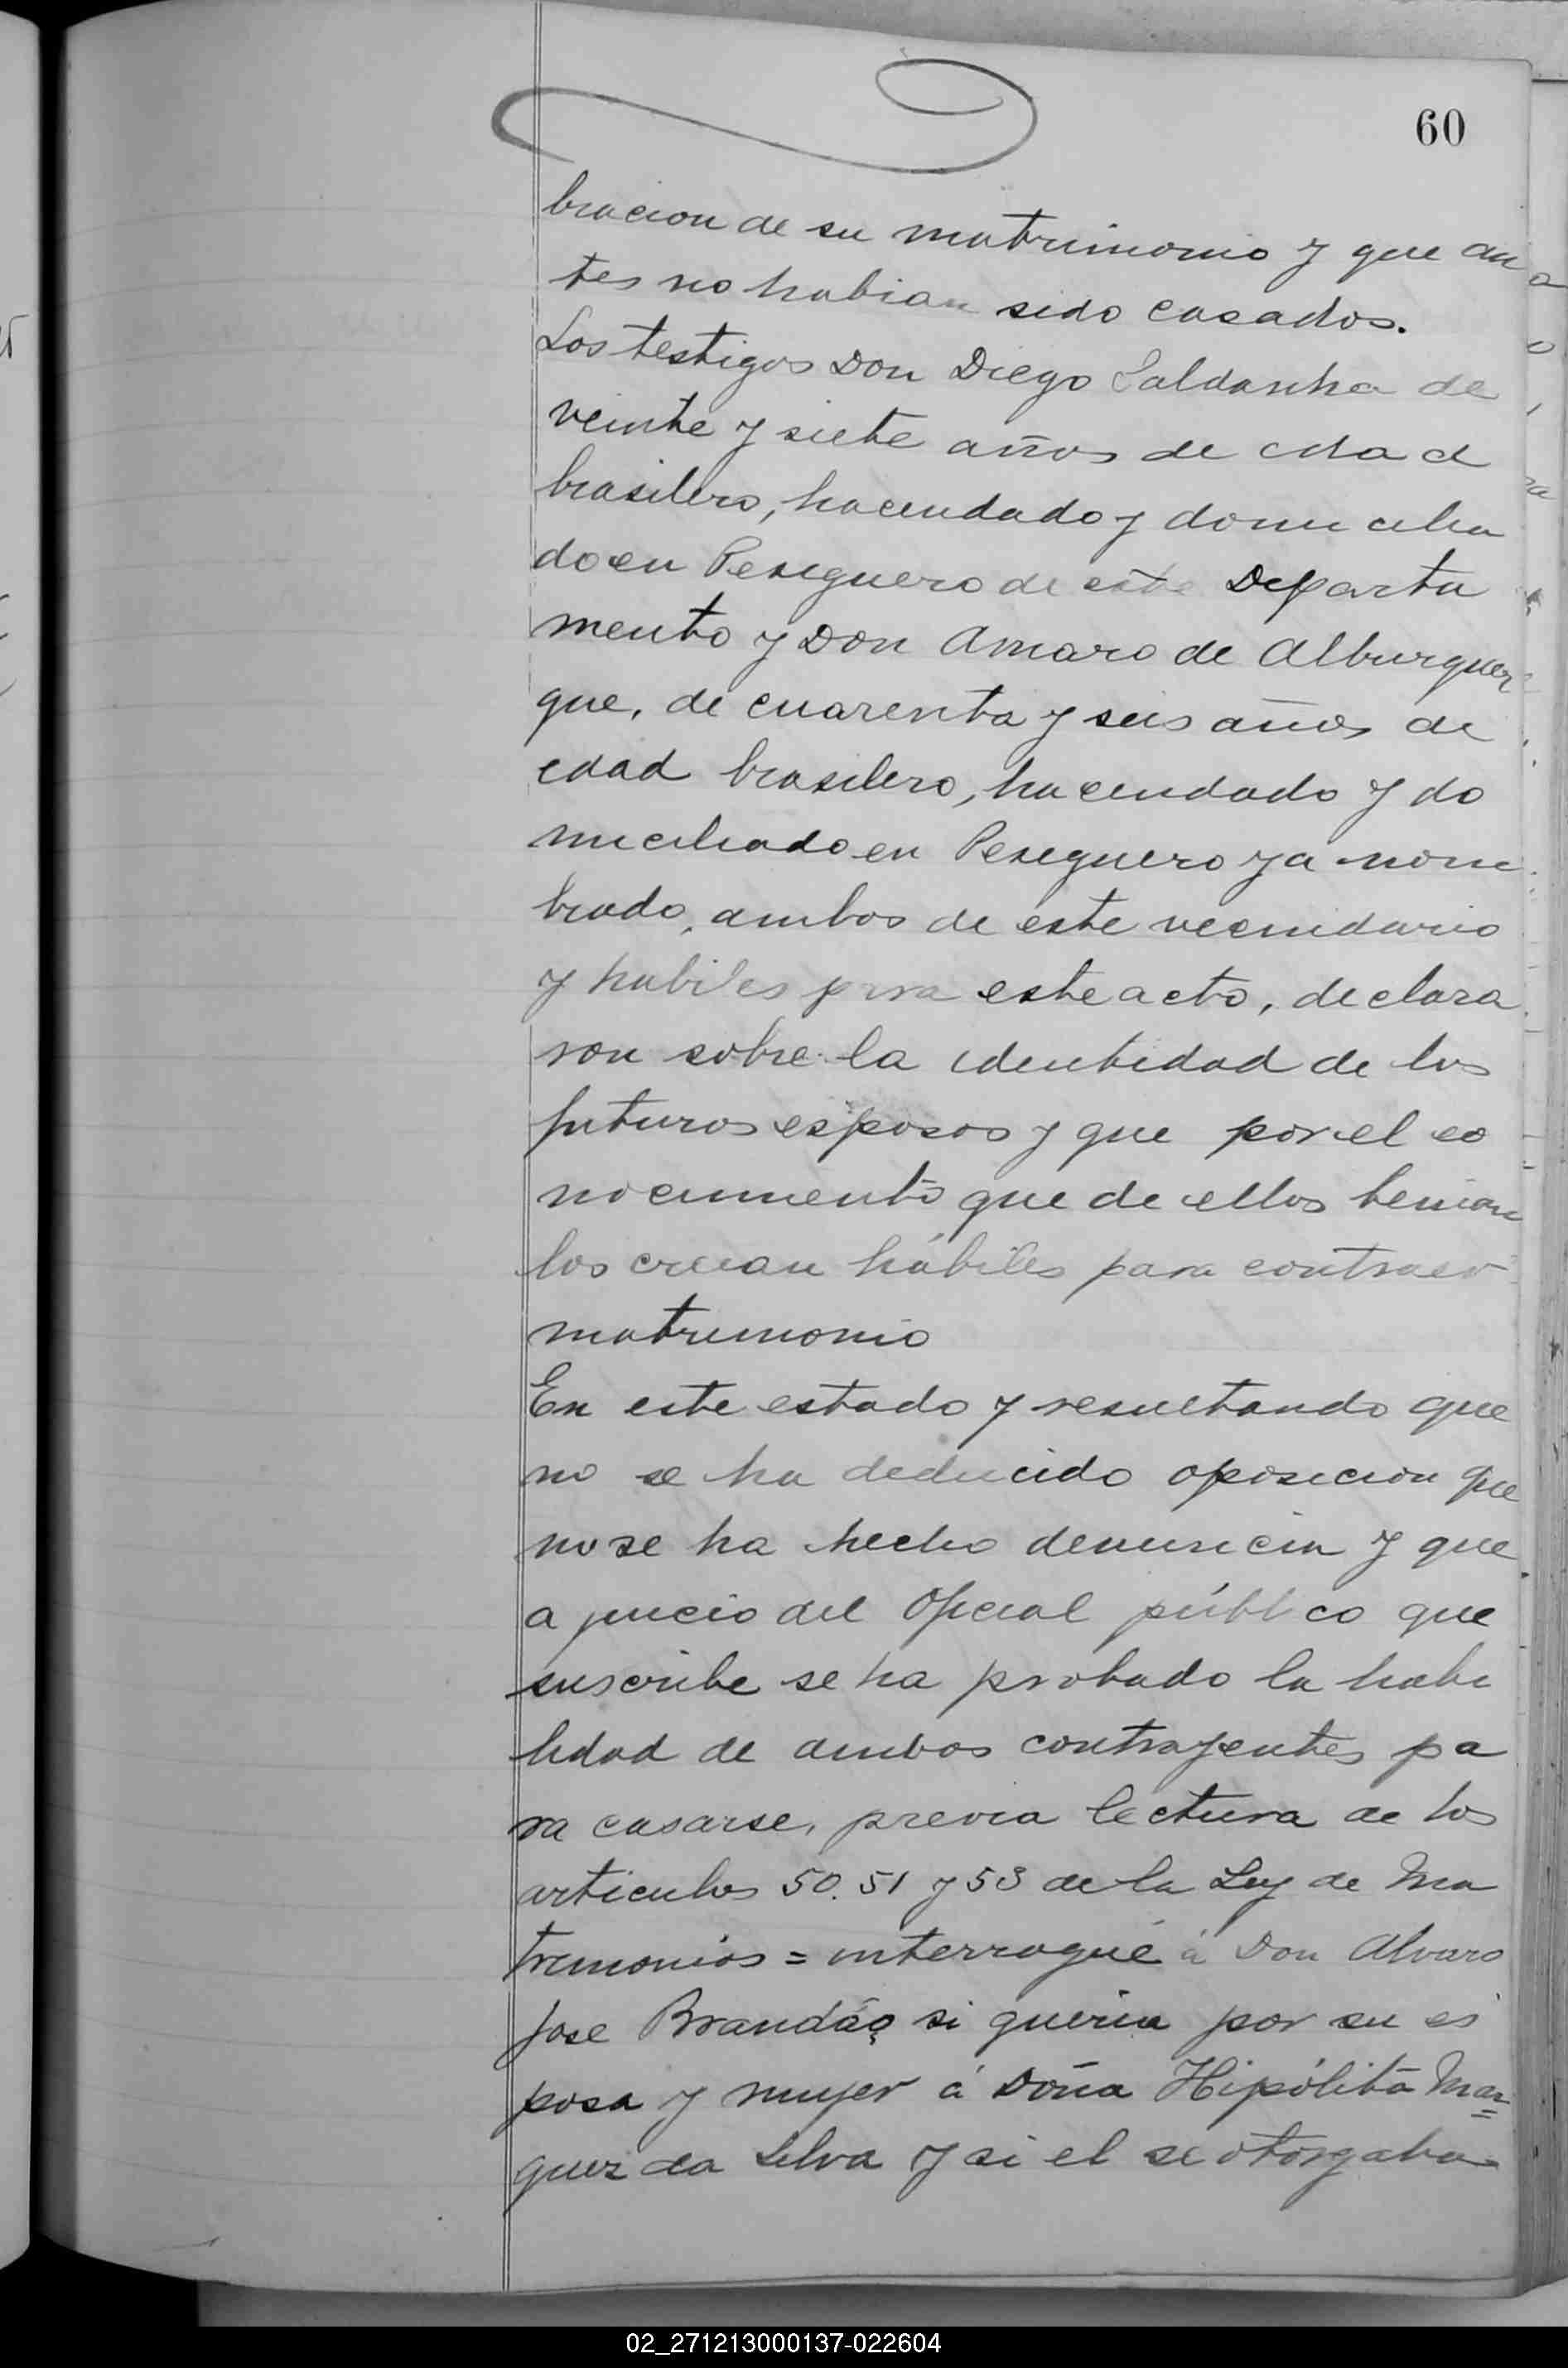 60
bracion de su matrimonio y que an
tes no habian sido casados.
Los testigos Don Diego Saldanha de
veinte y siete años de edad
brasilero, hacendado y domicilia
do en Peseguero de este Departa
mento y Don Amaro de Alburquer
que, de cuarenta y seis años de
edad brasilero, hacendado y do
miciliado en Peseguero ya nom
brado, ambos de este vecindario
y habiles para este acto, declara
ron sobre la identidad de los
futuros esposos y que por el co
nocimiento que de ellos tenian
los creian hábiles para contraer
matrimonio
En este estado y resultando que
no se ha deducido oposicion que
no se ha hecho denuncia y que
a juicio del Oficial público que
suscribe se ha probado la habi
lidad de ambos contrayentes pa
ra casarse, previa lectura de los
articulos 50. 51 y 53 de la Ley de Ma
trimonios = interrogué á Don Alvaro
Jose Brandáo si queria por su es
posa y mujer á Doña Hipólita Mar=
quez da Silva y si el se otorgaba
02_271213000137-022604